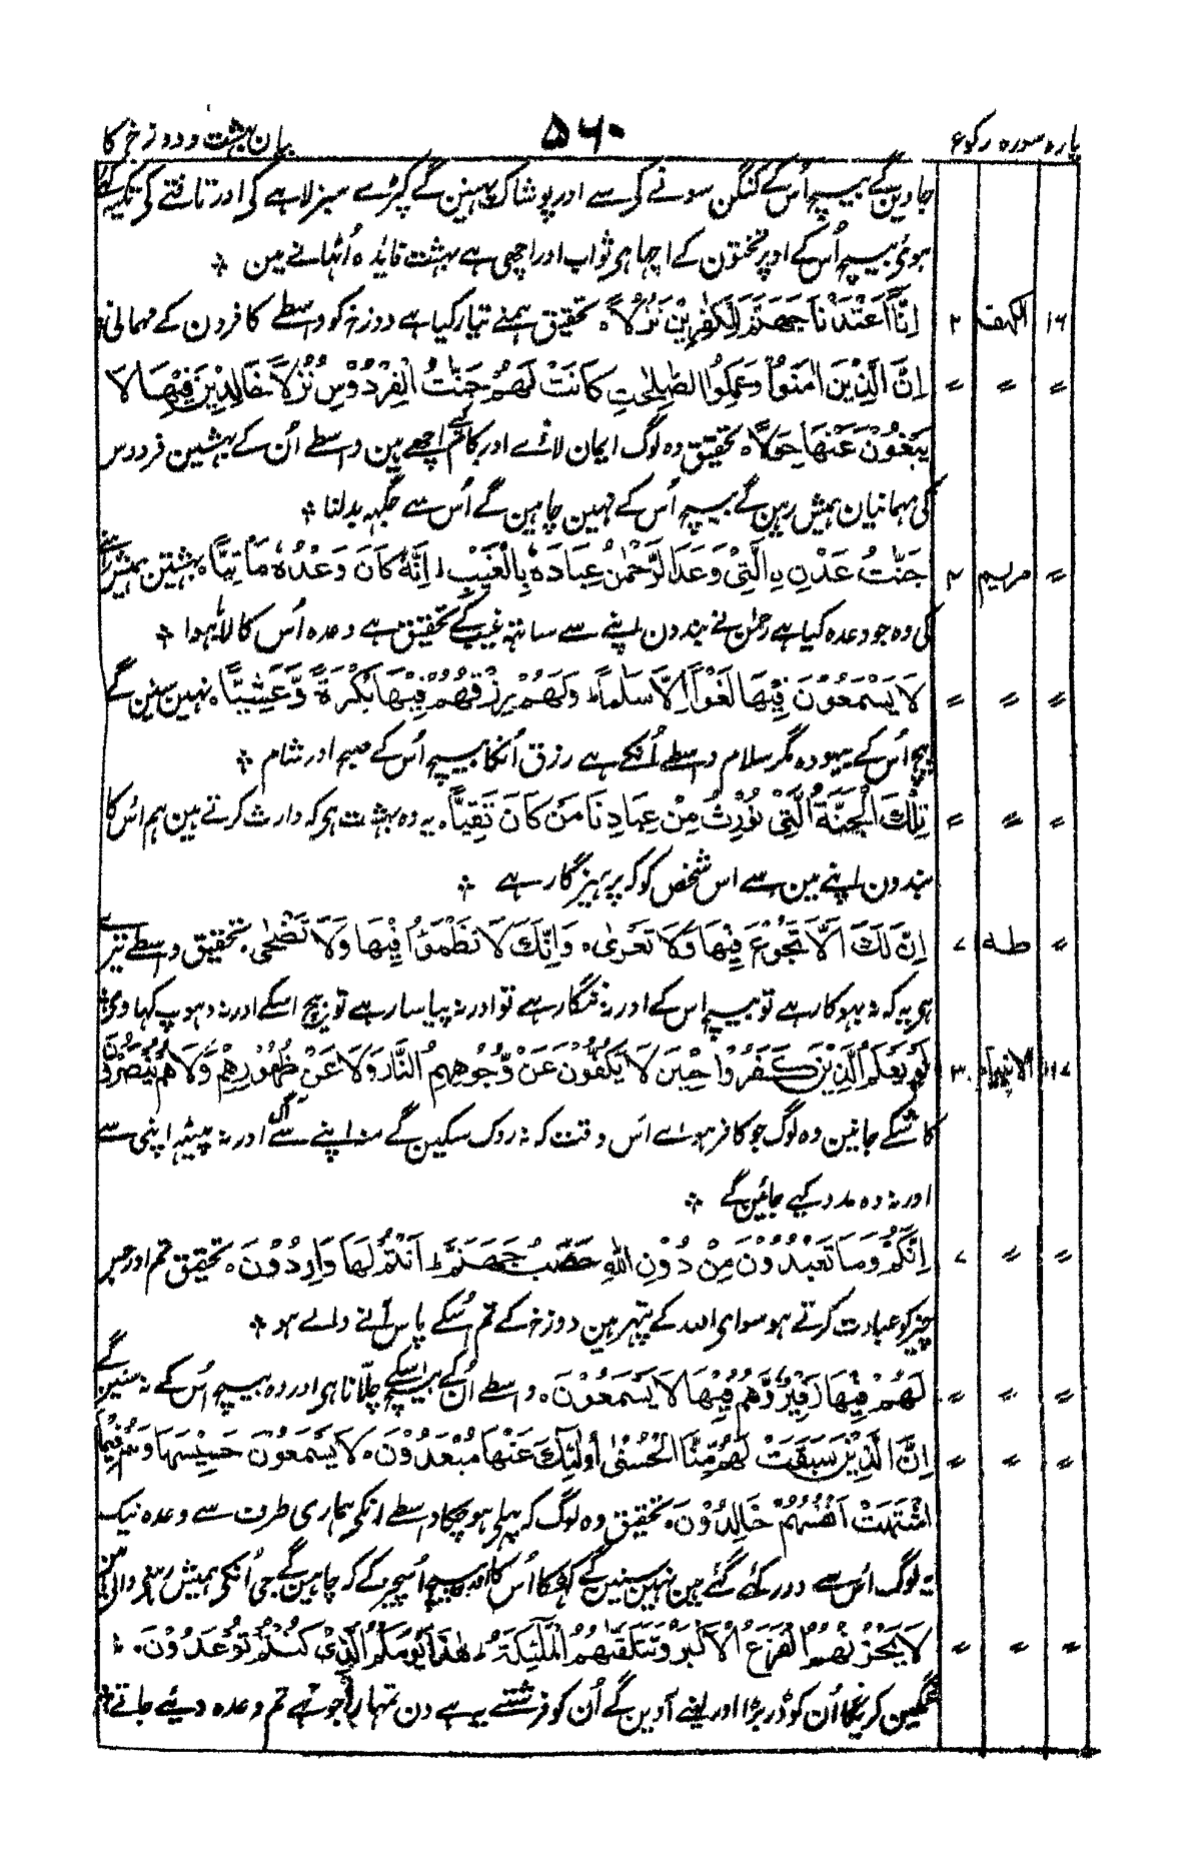 پارہ سورہ رکوع ۵۶۰ بیان بہشت و دوزخ کا
جاوینگے بیچ اُس کے کنگن سونے کے سے اور پوشاک پہنین گے کپڑے سبز لاہے کی اور تافتے کی تکیہ کئے
ہوئے بیچ اُس کے اوپر تختون کے اچہا ہی ثواب اور اچھی ہے بہشت فایدہ اُٹہانے مین ۞
۱۶ الکہف ۲ اِنَّا اَعْتَدْنَا جَهَنَّمَ لِلْكٰفِرِيْنَ نُزُلًا۝ تحقیق ہمنے تیار کیا ہے دوزخ کو واسطے کافرون کے مہمانی
〃 〃 〃 اِنَّ الَّذِيْنَ اٰمَنُوْا وَعَمِلُوا الصّٰلِحٰتِ كَانَتْ لَهُمْ جَنّٰتُ الْفِرْدَوْسِ نُزُلًا خَالِدِيْنَ فِيْهَا لَا
يَبْغُوْنَ عَنْهَا حِوَلًا۝ تحقیق وہ لوگ ایمان لائے اور کام کئے اچھے ہین واسطے اُن کے بہشتین فردوس
کی مہمانیان ہمیش رہین گے بیچ اُس کے نہین چاہین گے اُس سے جگہہ بدلنا ۞
〃 مریم ۴ جَنّٰتُ عَدْنِ ۣالَّتِيْ وَعَدَ الرَّحْمٰنُ عِبَادَهٗ بِالْغَيْبِ ؕ اِنَّهٗ كَانَ وَعْدُهٗ مَاْتِيًّا۝ بہشتین ہمیش رہنے
کی وہ جو وعدہ کیا ہے رحمٰن نے بندون اپنے سے ساتہہ غیب کے تحقیق ہے وعدہ اُس کا لایا ہوا ۞
〃 〃 〃 لَا يَسْمَعُوْنَ فِيْهَا لَغْوًا اِلَّا سَلَامًا ؕ وَلَهُمْ رِزْقُهُمْ فِيْهَا بُكْرَةً وَّعَشِيًّا۝ نہین سنین گے
بیچ اُس کے بیہودہ مگر سلام واسطے اُنکے ہے رزق اُنکا بیچ اُس کے صبح اور شام ۞
〃 〃 〃 تِلْكَ الْجَنَّةُ الَّتِيْ نُوْرِثُ مِنْ عِبَادِنَا مَنْ كَانَ تَقِيًّا۝ یہ وہ بہشت ہی کہ وارث کرتے ہین ہم اُس کا
بندون اپنے مین سے اس شخص کو کہ پرہیزگار ہے ۞
〃 طہ ۷ اِنَّ لَكَ اَلَّا تَجُوْعَ فِيْهَا وَلَا تَعْرٰى۝ وَاَنَّكَ لَا تَظْمَؤُا فِيْهَا وَلَا تَضْحٰى۝ تحقیق واسطے تیرے
ہی یہ کہ نہ بہوکا رہے تو بیچ اس کے اور نہ ننگا رہے تو اور نہ پیاسا رہے تو بیچ اسکے اور نہ دہوپ کہاوے
۱۷ الانبیاء ۳ لَوْ يَعْلَمُ الَّذِيْنَ كَفَرُوْا حِيْنَ لَا يَكُفُّوْنَ عَنْ وُّجُوْهِهِمُ النَّارَ وَلَا عَنْ ظُهُوْرِهِمْ وَلَا هُمْ يُنْصَرُوْنَ
کاشکے جانین وہ لوگ جو کافر ہوئے اس وقت کہ نہ روک سکین گے منہ اپنے سے آگ اور نہ پیٹہہ اپنی سے
اور نہ وہ مدد کیے جائین گے ۞
〃 〃 ۷ اِنَّكُمْ وَمَا تَعْبُدُوْنَ مِنْ دُوْنِ اللّٰهِ حَصَبُ جَهَنَّمَ ؕ اَنْتُمْ لَهَا وَارِدُوْنَ۝ تحقیق تم اور جس
چیز کو عبادت کرتے ہو سوای اللہ کے پتہر ہین دوزخ کے تم اُسکے پاس آنے والے ہو ۞
〃 〃 〃 لَهُمْ فِيْهَا زَفِيْرٌ وَّهُمْ فِيْهَا لَا يَسْمَعُوْنَ۝ واسطے اُن کے بیچ اسکے چلّانا ہی اور وہ بیچ اُس کے نہ سنین گے
〃 〃 〃 اِنَّ الَّذِيْنَ سَبَقَتْ لَهُمْ مِّنَّا الْحُسْنٰى اُولٰٓئِكَ عَنْهَا مُبْعَدُوْنَ۝ لَا يَسْمَعُوْنَ حَسِيْسَهَا وَهُمْ فِيْمَا
اشْتَهَتْ اَنْفُسُهُمْ خَالِدُوْنَ۝ تحقیق وہ لوگ کہ پہلے ہو چکا واسطے انکی ہماری طرف سے وعدہ نیک
یہ لوگ اُس سے دور رکھے گئے ہین نہین سنین گے کھٹکا اُس کا اور بیچ اُس چیز کے کہ چاہین گے جی اُنکی ہمیش رہنے والے ہین
〃 〃 〃 لَا يَحْزُنُهُمُ الْفَزَعُ الْاَكْبَرُ وَتَتَلَقّٰىهُمُ الْمَلٰٓئِكَةُ ؕ هٰذَا يَوْمُكُمُ الَّذِيْ كُنْتُمْ تُوْعَدُوْنَ۝ ۞
غمگین کریگا اُن کو ڈر بڑا اور لینے آوین گے اُن کو فرشتے یہ ہے دن تمہارا جو تہے تم وعدہ دیئے جاتے